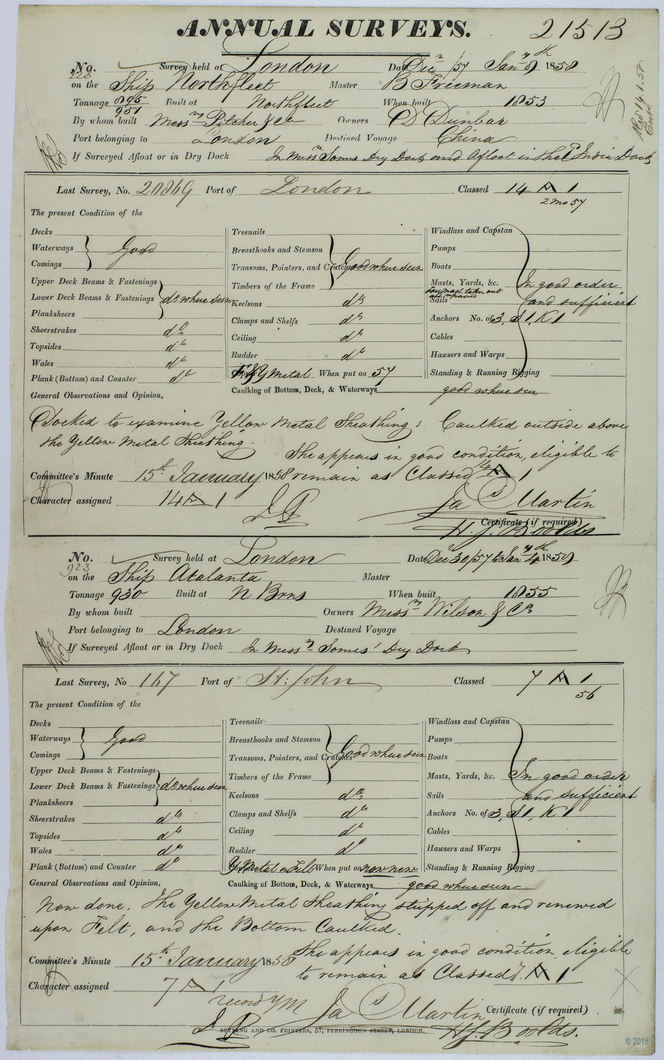 ANNUAL SURVEYS. 21513
No. 922 Survey held at London Date Decr /57 Jany 9th 1858
on the Ship Northfleet Master B Freeman
Tonnage 895 951 Built at Northfleet When built 1853
By whom built Messrs Pitcher & Co Owners D Dunbar
Port belonging to London Destined Voyage China
If Surveyed Afloat or in Dry Dock In Messrs Somes Dry Dock and Afloat in the India Dock
Last Survey, No. 20869 Port of London Classed 14 A 1
2 mo 57
The present Condition of the
Decks
Waterways
Comings
Good
Upper Deck Beams & Fastenings
Lower Deck Beams & Fastenings
Plansheers
do where seen
Sheerstrakes do
Topsides do
Wales do
Plank (Bottom) and Counter do
Treenails
Breasthooks and Stemson
Transoms, Pointers, and Crutches
Timbers of the Frame
Good where seen
Keelsons do
Clamps and Shelfs do
Ceiling do
Rudder do
Y Metal When put on 57
Caulking of Bottom, Deck, & Waterways good where seen
Windlass and Capstan
Pumps
Boats
Masts, Yards, &c.
Sails
Anchors No. of 3, S1, K1
Cables
Hawsers and Warps
Standing & Running Rigging
In good order
and sufficient
General Observations and Opinion,
Docked to examine Yellow Metal Sheathing; Caulked outside above
the Yellow Metal Sheathing.
She appears in good condition, eligible to
Committee's Minute 15th January 1858 remain as Classed 14 A 1
Character assigned 14 A 1 Jas Martin
Certificate (if required)
No. 923 Survey held at London Date Decr 30/57 to Jany 4th 1858
on the Ship Atalanta Master
Tonnage 930 Built at N Brns When built 1855
By whom built Owners Messrs Wilson & Co
Port belonging to London Destined Voyage
If Surveyed Afloat or in Dry Dock In Messrs Somes' Dry Dock
Last Survey, No 167 Port of St. John Classed 7 A 1
56
The present Condition of the
Decks
Waterways
Comings
Good
Upper Deck Beams & Fastenings
Lower Deck Beams & Fastenings
Plansheers
do where seen
Sheerstrakes do
Topsides do
Wales do
Plank (Bottom) and Counter do
Treenails
Breasthooks and Stemson
Transoms, Pointers, and Crutches
Timbers of the Frame
Good where seen
Keelsons do
Clamps and Shelfs do
Ceiling do
Rudder do
Y Metal on Felt When put on now new
Caulking of Bottom, Deck, & Waterways good where seen
Windlass and Capstan
Pumps
Boats
Masts, Yards, &c.
Sails
Anchors No. of 3, S1, K1
Cables
Hawsers and Warps
Standing & Running Rigging
In good order
and sufficient
General Observations and Opinion,
Now done. The Yellow Metal Sheathing stripped off and renewed
upon Felt, and the Bottom Caulked.
She appears in good condition, eligible
Committee's Minute 15th January 1858 to remain as Classed 7 A 1
Character assigned 7 A 1
record YM Jas Martin Certificate (if required)
AND CO. PRINTERS, 57, FARRINGDON STREET, LONDON.
© 2018